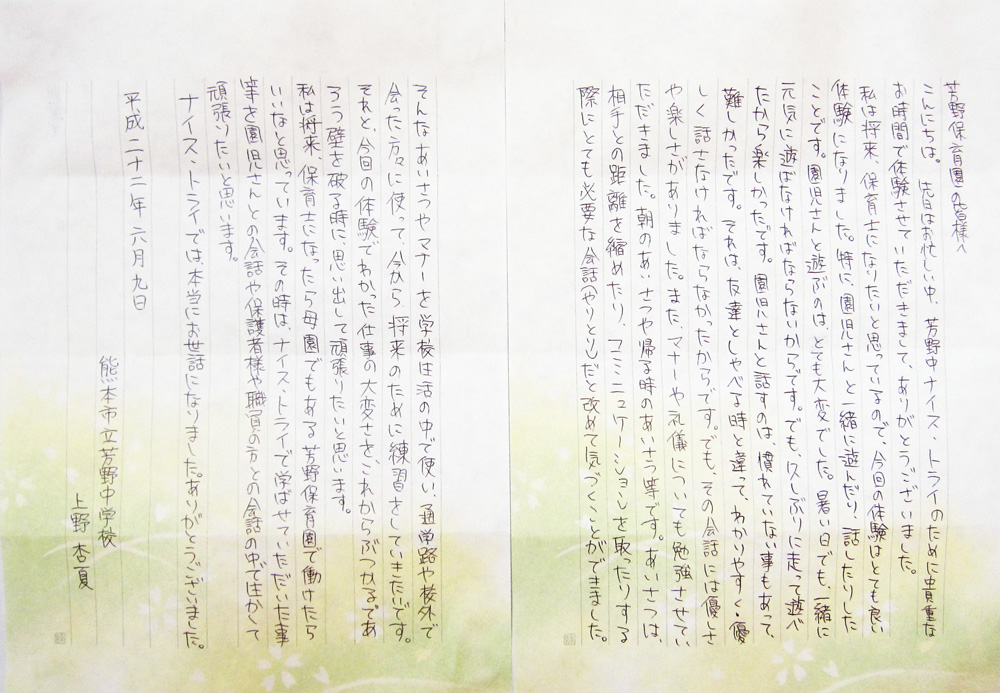 芳野保育園の皆様へ
こんにちは。先日はお忙しい中、芳野中ナイス・トライのために貴重な
お時間で体験させていただきまして、ありがとうございました。
私は将来、保育士になりたいと思っているので、今回の体験はとても良い
体験になりました。特に、園児さんと一緒に遊んだり、話したりした
ことです。園児さんと遊ぶのは、とても大変でした。暑い日でも、一緒に
元気に遊ばなければならないからです。でも、久しぶりに走って遊べ
たから楽しかったです。園児さんと話すのは、慣れていない事もあって、
難しかったです。それは、友達としゃべる時と違って、わかりやすく・優
しく話さなければならなかったからです。でも、その会話には優しさ
や楽しさがありました。また、マナーや礼儀についても勉強させてい
ただきました。朝のあいさつや帰る時のあいさつ等です。あいさつは、
相手との距離を縮めたり、コミニュケーションを取ったりする
際にとても必要な会話(やりとり)だと改めて気づくことができました。
そんなあいさつやマナーを学校生活の中で使い、通学路や校外で
会った方々に使って、今から将来のために練習をしていきたいです。
それと、今回の体験でわかった仕事の大変さを、これからぶつかるであ
ろう壁を破る時に、思い出して頑張りたいと思います。
私は将来、保育士になったら母園でもある芳野保育園で働けたら
いいなと思っています。その時は、ナイス・トライで学ばせていただいた事
等を園児さんとの会話や保護者様や職員の方との会話の中で生かして
頑張りたいと思います。
ナイス・トライでは、本当にお世話になりました。ありがとうございました。
平成二十二年 六月九日
熊本市立芳野中学校
上野 杏夏